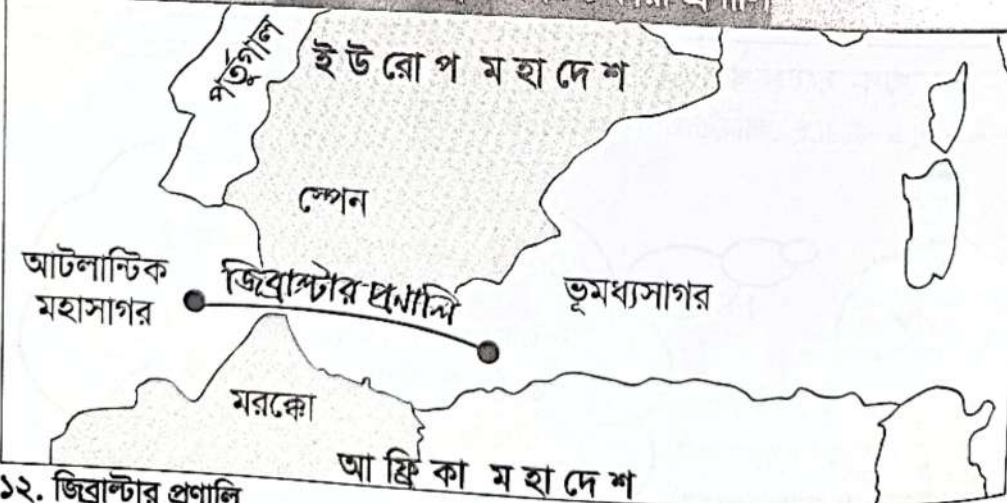 প্রণালি
পর্তুগাল
ইউরোপ মহাদেশ
স্পেন
আটলান্টিক
মহাসাগর
জিব্রাল্টার প্রণালি
ভূমধ্যসাগর
মরক্কো
আফ্রিকা মহাদেশ
১২. জিব্রাল্টার প্রণালি